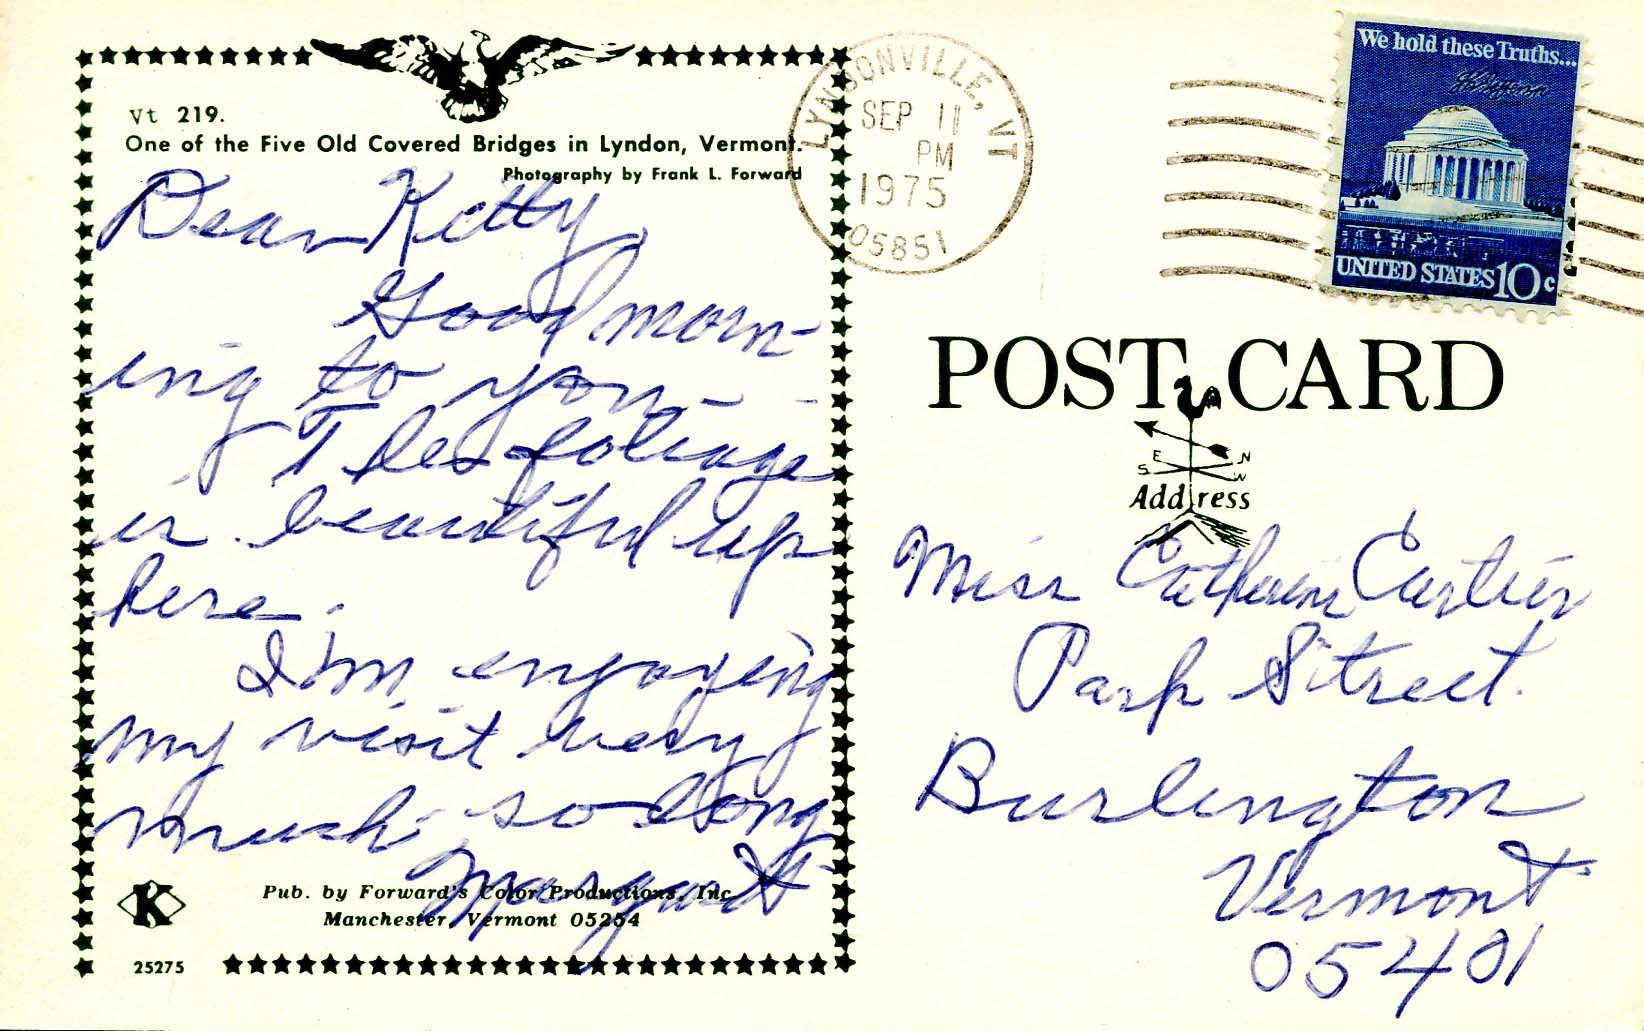 Vt 219.
One of the Five Old Covered Bridges in Lyndon, Vermont.
Photography by Frank L. Forward
Dear Kitty,
Good morn-
ing to you - -
The foliage
is beautiful up
here.
I'm enjoying
my visit very
much. so long
Margaret
Pub. by Forward's Color Productions, Inc.
Manchester, Vermont 05254
K
25275
LYNDONVILLE, VT
SEP 11
PM
1975
05851
We hold these Truths...
Th Jefferson
UNITED STATES 10c
POST CARD
E N
S W
Address
Miss Catherine Cartier
Park Street.
Burlington
Vermont
05401